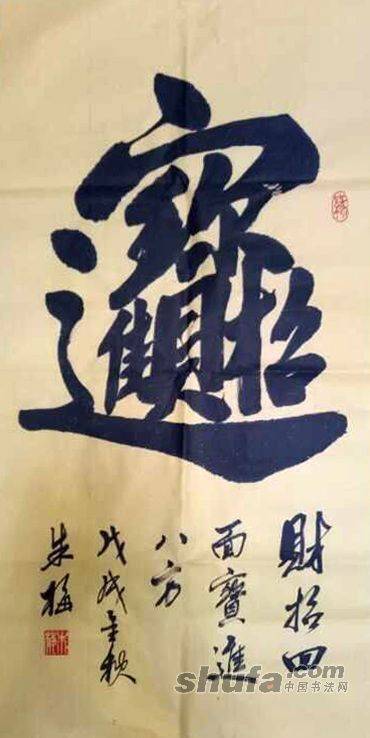 招財進寶
財招四
面寶進
八方
戊戌金秋
朱梅
shufa.com
中国书法网